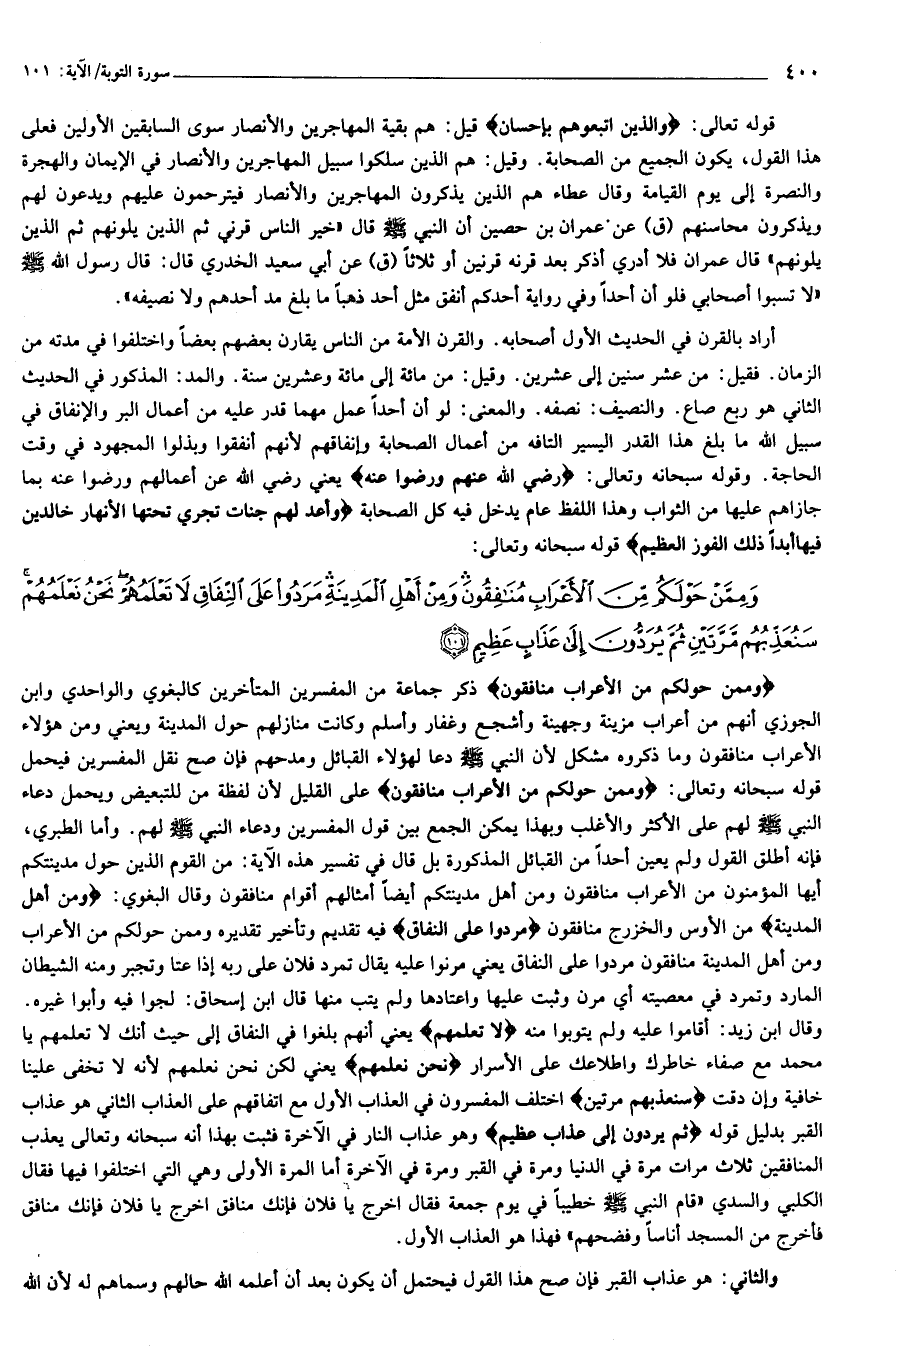 ٤٠٠ سورة التوبة/ الآية: ١٠١
قوله تعالى: ﴿والذين اتبعوهم بإحسان﴾ قيل: هم بقية المهاجرين والأنصار سوى السابقين الأولين فعلى
هذا القول، يكون الجميع من الصحابة. وقيل: هم الذين سلكوا سبيل المهاجرين والأنصار في الإيمان والهجرة
والنصرة إلى يوم القيامة وقال عطاء هم الذين يذكرون المهاجرين والأنصار فيترحمون عليهم ويدعون لهم
ويذكرون محاسنهم (ق) عن عمران بن حصين أن النبي ﷺ قال «خير الناس قرني ثم الذين يلونهم ثم الذين
يلونهم» قال عمران فلا أدري أذكر بعد قرنه قرنين أو ثلاثاً (ق) عن أبي سعيد الخدري قال: قال رسول الله ﷺ
«لا تسبوا أصحابي فلو أن أحداً وفي رواية أحدكم أنفق مثل أحد ذهباً ما بلغ مد أحدهم ولا نصيفه».
أراد بالقرن في الحديث الأول أصحابه. والقرن الأمة من الناس يقارن بعضهم بعضاً واختلفوا في مدته من
الزمان. فقيل: من عشر سنين إلى عشرين. وقيل: من مائة إلى مائة وعشرين سنة. والمد: المذكور في الحديث
الثاني هو ربع صاع. والنصيف: نصفه. والمعنى: لو أن أحداً عمل مهما قدر عليه من أعمال البر والإنفاق في
سبيل الله ما بلغ هذا القدر اليسير التافه من أعمال الصحابة وإنفاقهم لأنهم أنفقوا وبذلوا المجهود في وقت
الحاجة. وقوله سبحانه وتعالى: ﴿رضي الله عنهم ورضوا عنه﴾ يعني رضي الله عن أعمالهم ورضوا عنه بما
جازاهم عليها من الثواب وهذا اللفظ عام يدخل فيه كل الصحابة ﴿وأعد لهم جنات تجري تحتها الأنهار خالدين
فيهاأبداً ذلك الفوز العظيم﴾ قوله سبحانه وتعالى:
وَمِمَّنْ حَوْلَكُم مِّنَ ٱلْأَعْرَابِ مُنَافِقُونَ ۖ وَمِنْ أَهْلِ ٱلْمَدِينَةِ ۖ مَرَدُوا عَلَى ٱلنِّفَاقِ لَا تَعْلَمُهُمْ ۖ نَحْنُ نَعْلَمُهُمْ ۚ
سَنُعَذِّبُهُم مَّرَّتَيْنِ ثُمَّ يُرَدُّونَ إِلَىٰ عَذَابٍ عَظِيمٍ ﴿١٠١﴾
﴿وممن حولكم من الأعراب منافقون﴾ ذكر جماعة من المفسرين المتأخرين كالبغوي والواحدي وابن
الجوزي أنهم من أعراب مزينة وجهينة وأشجع وغفار وأسلم وكانت منازلهم حول المدينة ويعني ومن هؤلاء
الأعراب منافقون وما ذكروه مشكل لأن النبي ﷺ دعا لهؤلاء القبائل ومدحهم فإن صح نقل المفسرين فيحمل
قوله سبحانه وتعالى: ﴿وممن حولكم من الأعراب منافقون﴾ على القليل لأن لفظة من للتبعيض ويحمل دعاء
النبي ﷺ لهم على الأكثر والأغلب وبهذا يمكن الجمع بين قول المفسرين ودعاء النبي ﷺ لهم. وأما الطبري،
فإنه أطلق القول ولم يعين أحداً من القبائل المذكورة بل قال في تفسير هذه الآية: من القوم الذين حول مدينتكم
أيها المؤمنون من الأعراب منافقون ومن أهل مدينتكم أيضاً أمثالهم أقوام منافقون وقال البغوي: ﴿ومن أهل
المدينة﴾ من الأوس والخزرج منافقون ﴿مردوا على النفاق﴾ فيه تقديم وتأخير تقديره وممن حولكم من الأعراب
ومن أهل المدينة منافقون مردوا على النفاق يعني مرنوا عليه يقال تمرد فلان على ربه إذا عتا وتجبر ومنه الشيطان
المارد وتمرد في معصيته أي مرن وثبت عليها واعتادها ولم يتب منها قال ابن إسحاق: لجوا فيه وأبوا غيره.
وقال ابن زيد: أقاموا عليه ولم يتوبوا منه ﴿لا تعلمهم﴾ يعني أنهم بلغوا في النفاق إلى حيث أنك لا تعلمهم يا
محمد مع صفاء خاطرك واطلاعك على الأسرار ﴿نحن نعلمهم﴾ يعني لكن نحن نعلمهم لأنه لا تخفى علينا
خافية وإن دقت ﴿سنعذبهم مرتين﴾ اختلف المفسرون في العذاب الأول مع اتفاقهم على العذاب الثاني هو عذاب
القبر بدليل قوله ﴿ثم يردون إلى عذاب عظيم﴾ وهو عذاب النار في الآخرة فثبت بهذا أنه سبحانه وتعالى يعذب
المنافقين ثلاث مرات مرة في الدنيا ومرة في القبر ومرة في الآخرة أما المرة الأولى وهي التي اختلفوا فيها فقال
الكلبي والسدي «قام النبي ﷺ خطيباً في يوم جمعة فقال اخرج يا فلان فإنك منافق اخرج يا فلان فإنك منافق
فأخرج من المسجد أناساً وفضحهم» فهذا هو العذاب الأول.
والثاني: هو عذاب القبر فإن صح هذا القول فيحتمل أن يكون بعد أن أعلمه الله حالهم وسماهم له لأن الله